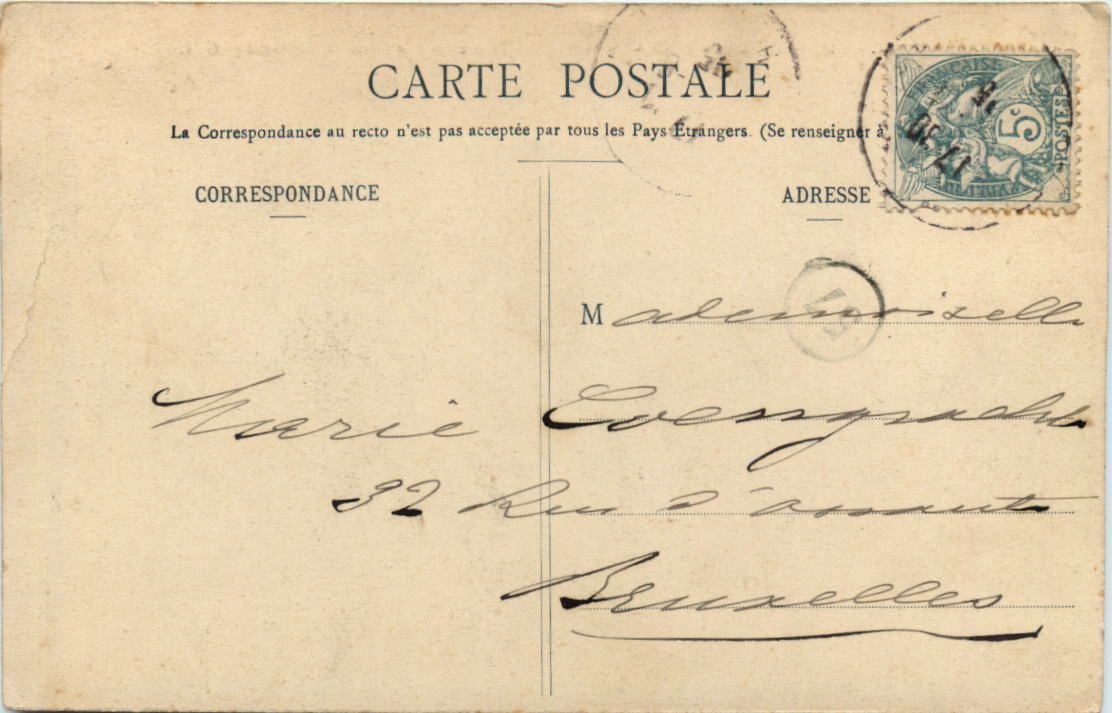 CARTE POSTALE
La Correspondance au recto n'est pas acceptée par tous les Pays Étrangers. (Se renseigner à
CORRESPONDANCE
ADRESSE
FRANÇAISE
5c
POSTES
Mademoiselle
Marie
32 Rue d'
Bruxelles